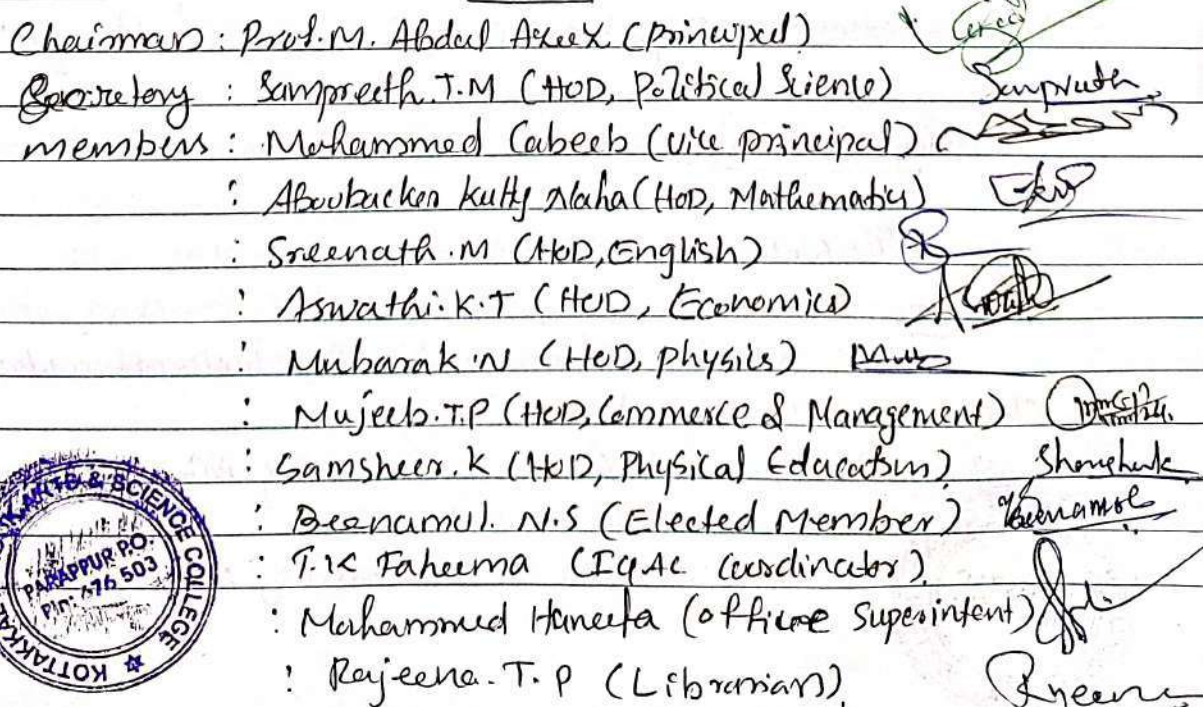 Chairman : Prof. M. Abdul Azeez (principal)
Secretary : Sampreeth. T.M (HOD, Political Science) Sampreeth
members : Mohammed Cabeeb (vice principal)
: Aboobacker Kutty Naha (HOD, Mathematics)
: Sreenath. M (HOD, English)
: Aswathi. K.T (HOD, Economics)
: Mubarak. N (HOD, physics)
: Mujeeb. T.P (HOD, Commerce & Management)
: Samsheer. K (HOD, Physical Education)
: Beenamol. N.S (Elected Member) Beenamol
: T.K Faheema (IQAC Coordinator)
: Mohammed Haneefa (office Superintent)
: Rajeena. T.P (Librarian)
ARTS & SCIENCE COLLEGE
PARAPPUR P.O.
Pin: 676 503
KOTTAKKAL